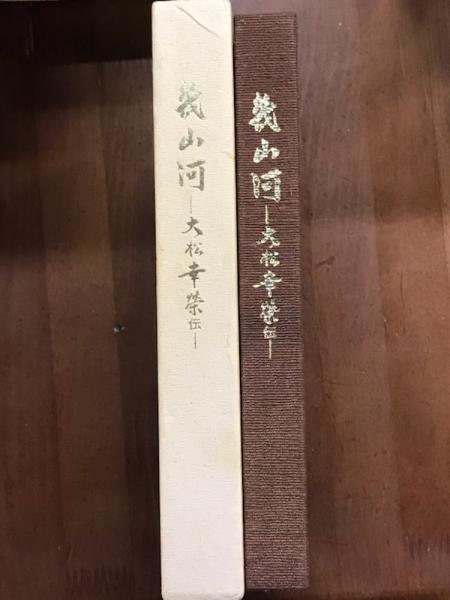 幾山河―大松幸榮伝―
幾山河―大松幸榮伝―